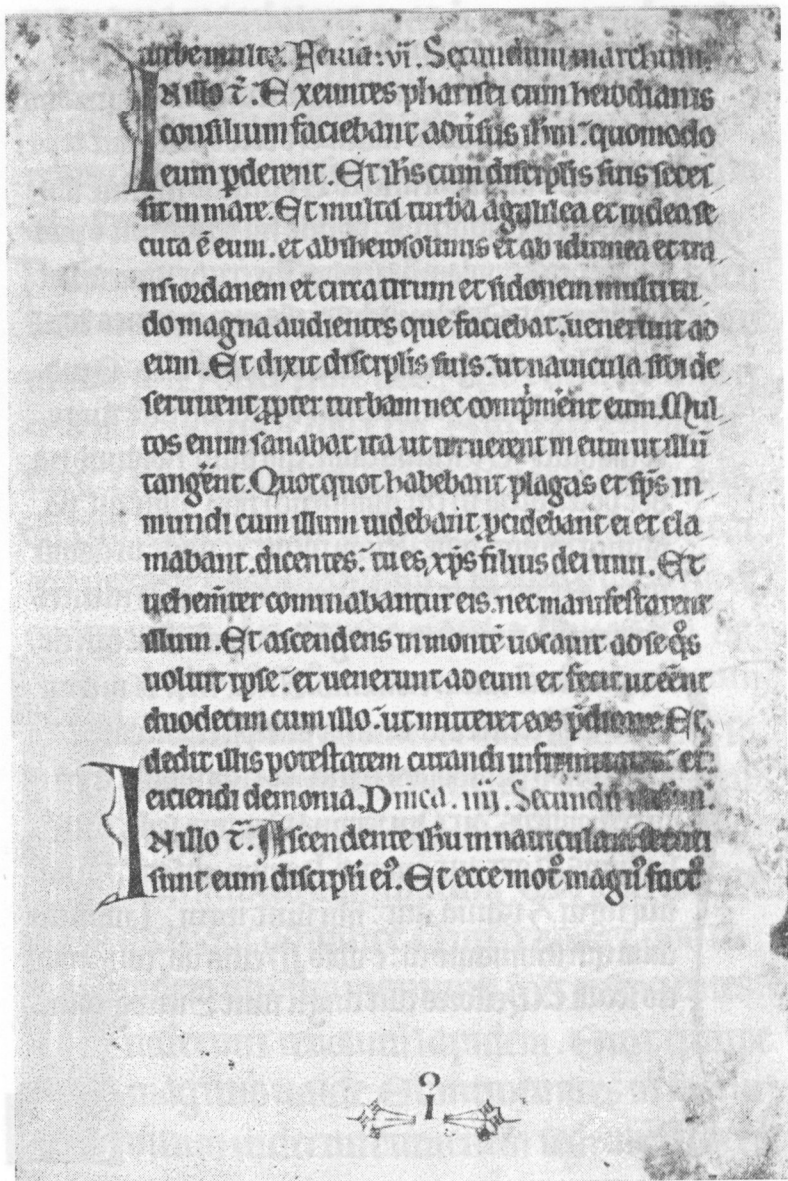 turbe multe. Feria. vi. Secundum marchum.
IN illo t̄. Exeuntes pharisei cum herodianis
consilium faciebant adūsus ihm̄. quomodo
eum pderent. Et ihs cum disciplis suis seces
sit in mare. Et multa turba a galilea et iudea se
cuta ē eum. et ab iherosolimis et ab idumea et tra
nsiordanem et circa tirum et sidonem multitu
do magna audientes que faciebat. uenerunt ad
eum. Et dixit disciplis suis. ut nauicula sibi de
seruirent ppter turbam nec comp̄ment eum. Mul
tos enim sanabat ita ut irruerent in eum ut illū
tangēnt. Quotquot habebant plagas et sps̄ in
mundi cum illum uidebant. pcidebant ei et cla
mabant. dicentes. tu es xps̄ filius dei uiui. Et
uehem̄ter cominabantur eis. nec manifestarent
illum. Et ascendens in montē uocauit ad se qos
uoluit ipse. et uenerunt ad eum et fecit ut eēnt
duodecim cum illo. ut mitteret eos p̄dicare. Et
dedit illis potestatem curandi infirmitates et
eiciendi demonia. Dn̄ica. iiij. Secundū
IN illo t̄. Ascendente ihu in nauiculam secuti
sunt eum discipli ei⁹. Et ecce mot⁹ magn⁹ fact⁹
i